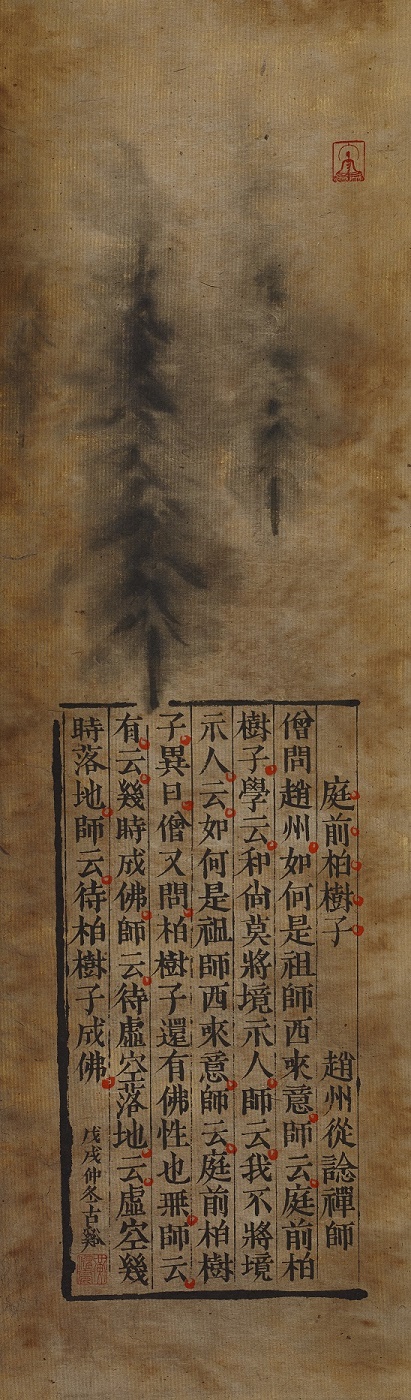 庭前柏樹子　趙州從諗禪師
僧問趙州如何是祖師西來意師云庭前柏
樹子學云和尚莫將境示人師云我不將境
示人云如何是祖師西來意師云庭前柏樹
子異日僧又問柏樹子還有佛性也無師云
有云幾時成佛師云待虛空落地云虛空幾
時落地師云待柏樹子成佛
戊戌仲冬古谿